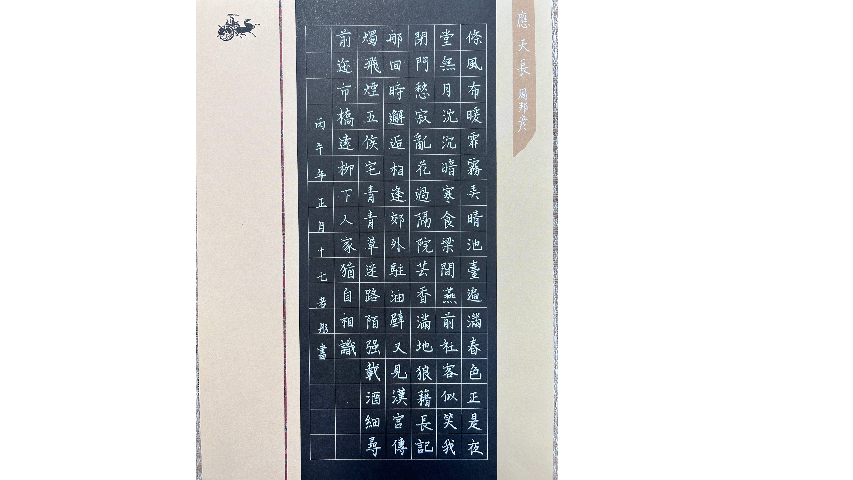 應天長 周邦彥
條風布暖霏霧弄晴池臺遍滿春色正是夜
堂無月沈沉暗寒食梁間燕前社客似笑我
閉門愁寂亂花過隔院芸香滿地狼藉長記
那回時邂逅相逢郊外駐油壁又見漢宮傳
燭飛煙五侯宅青青草迷路陌强載酒細尋
前迹市橋遠柳下人家猶自相識
丙午年正月十七
書